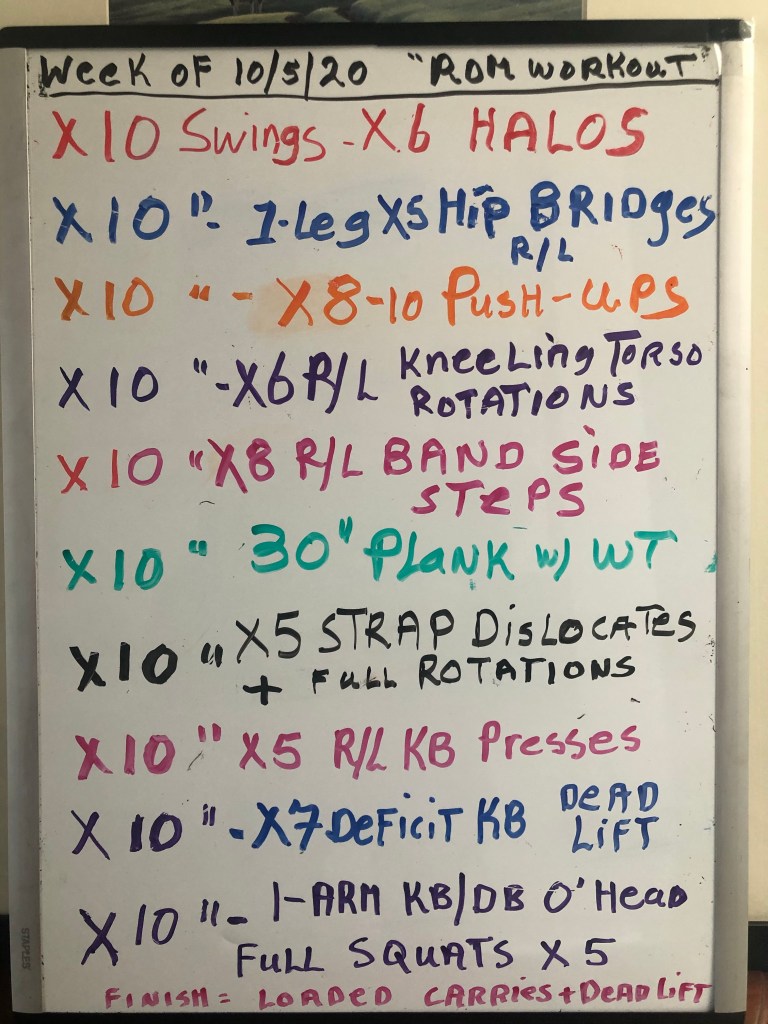 WeeK OF 10/5/20 "ROM WORKOUT"
X10 Swings - X6 HALOS
X10 "- 1-Leg X5 Hip BRIDges
R/L
X10 " - X8-10 PUSH-UPS
X10 "-X6 R/L KneeLing TORSO
ROTATIONS
X10 "X8 R/L BAND SiDE
STePS
X10 " 30" PLANK w/ WT
X10 " X5 STRAP DisLOCATes
+ FULL ROTATIONS
X10 " X5 R/L KB Presses
X10 " - X7 DeFiciT KB DeAD
LiFT
X10 "- 1-ARM KB/DB O'Head
FULL SQUATS X 5
FINISH = LOADED CARRIES + DeAD LiFT
STAPLES